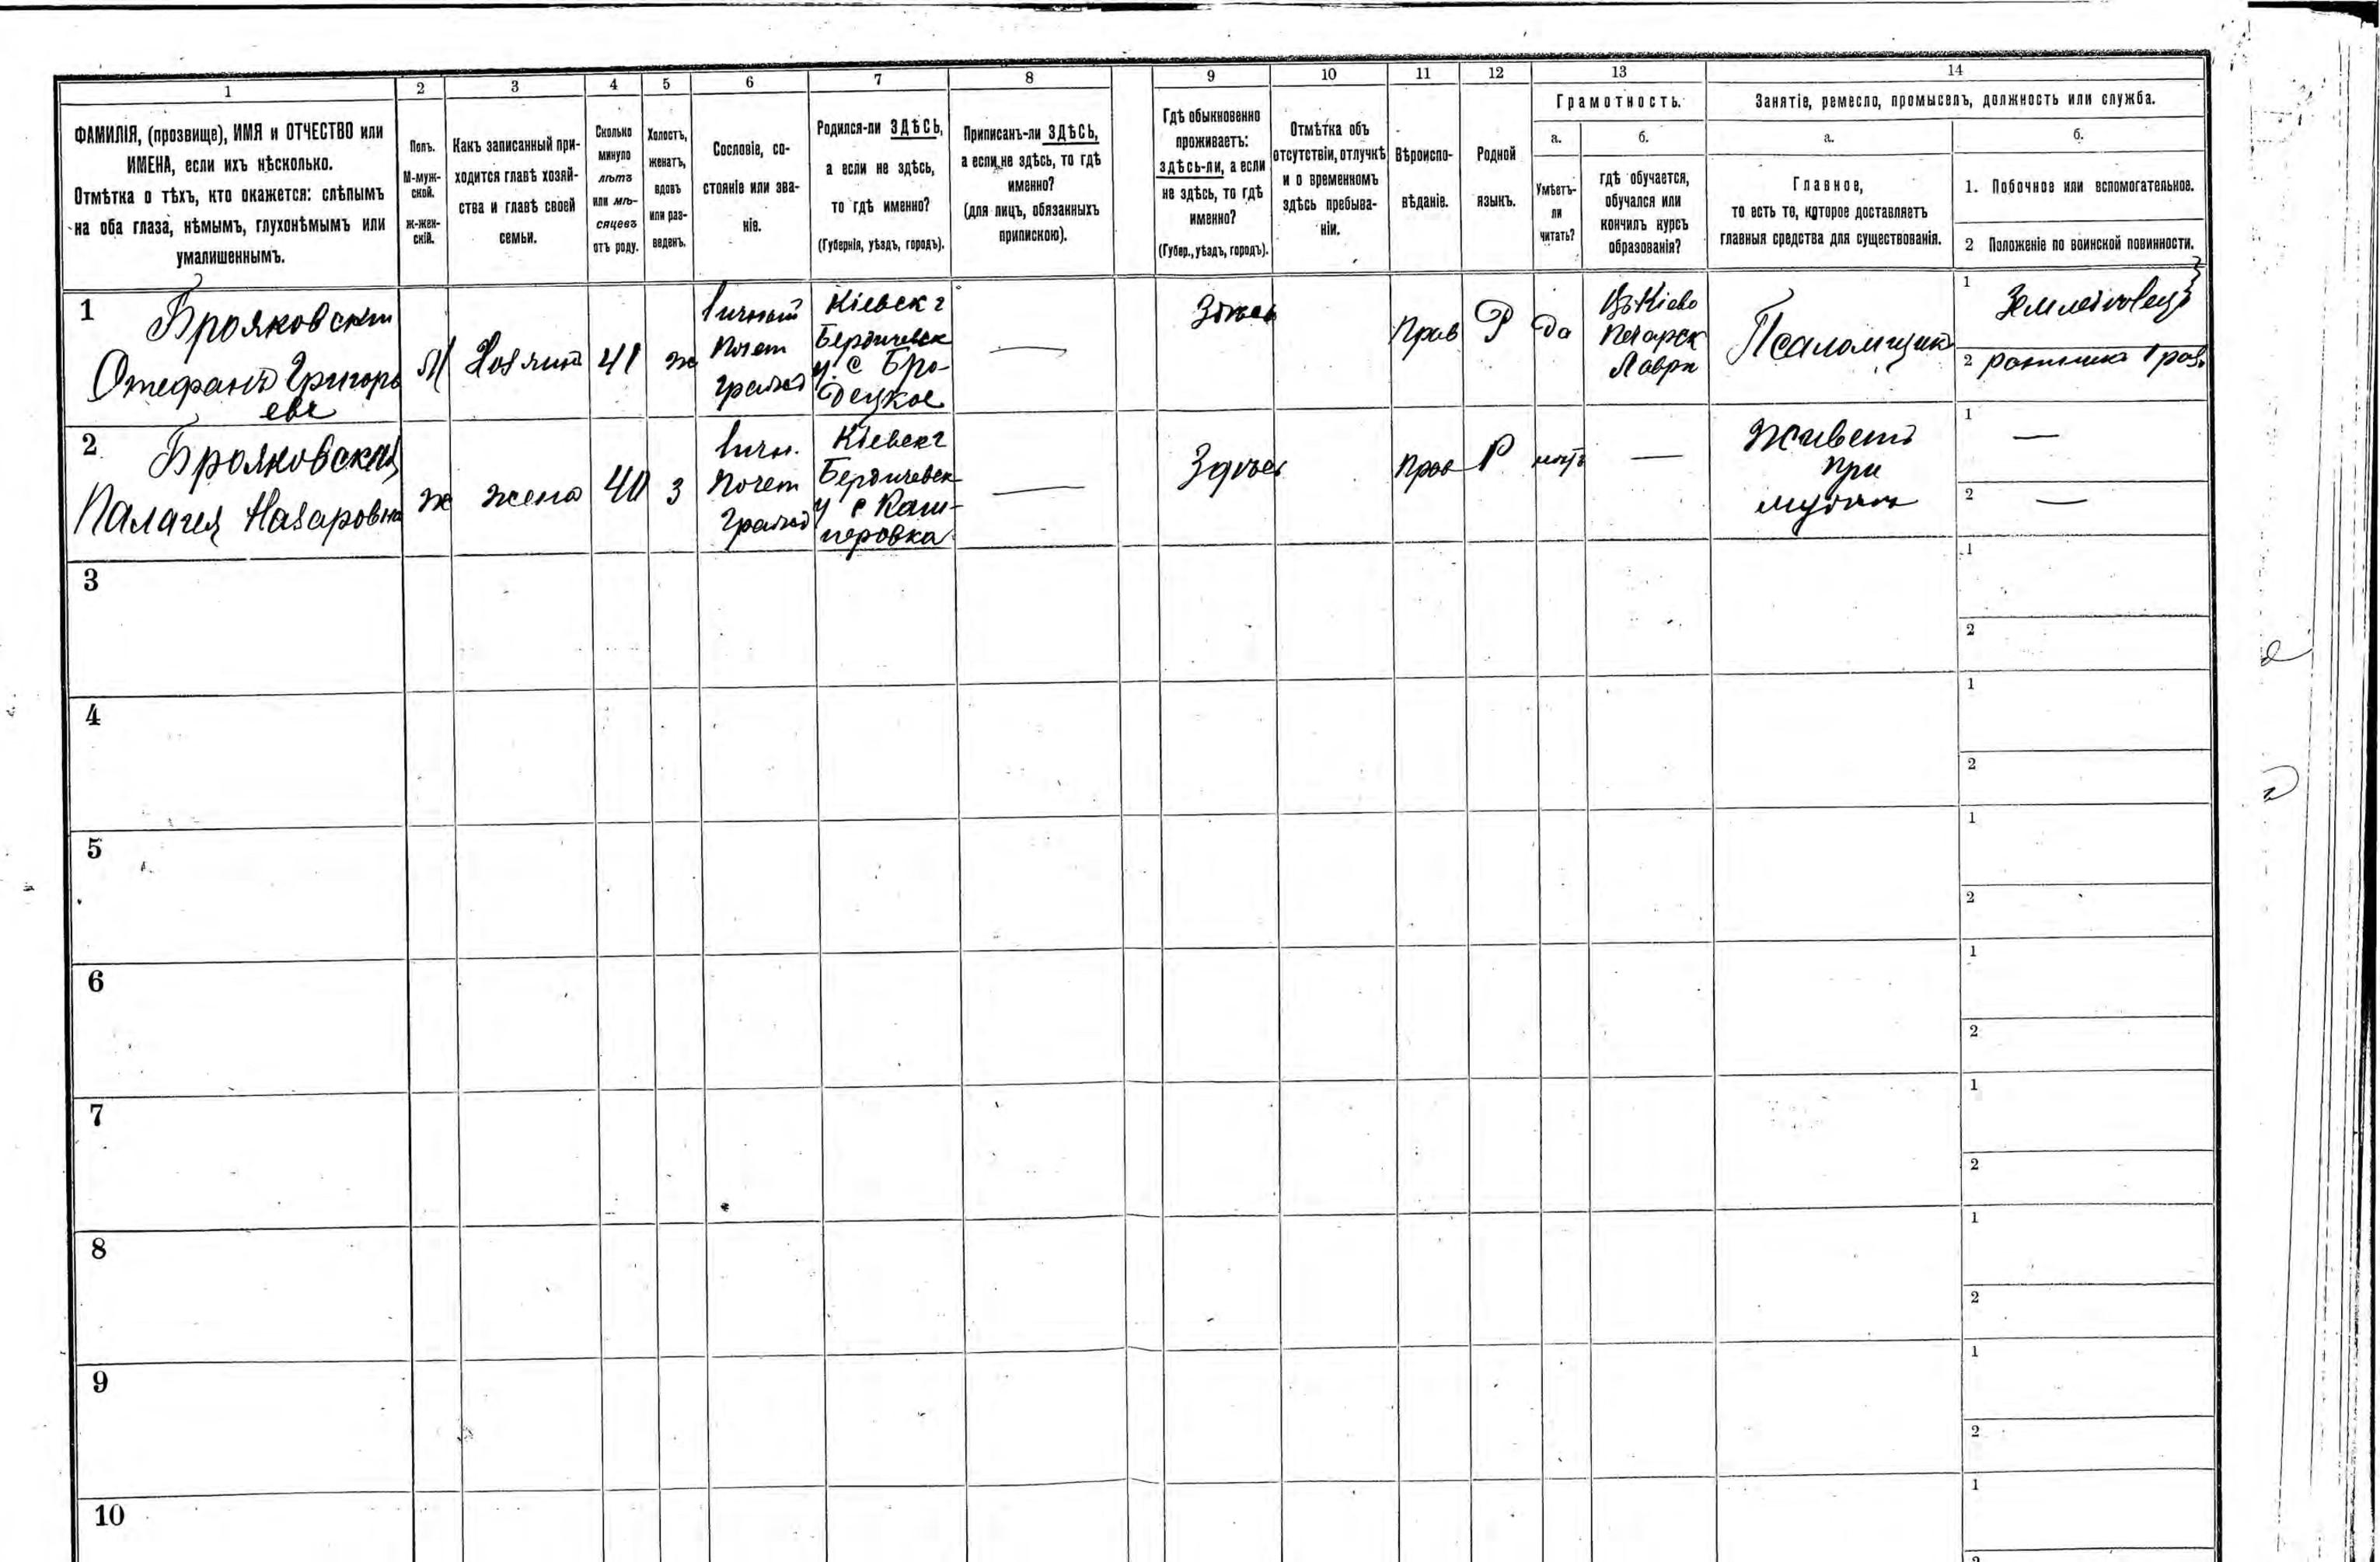 1
2
3
4
5
6
7
8
9
10
11
12
13
14
ФАМИЛІЯ, (прозвище), ИМЯ и ОТЧЕСТВО или
ИМЕНА, если ихъ нѣсколько.
Отмѣтка о тѣхъ, кто окажется: слѣпымъ
на оба глаза, нѣмымъ, глухонѣмымъ или
умалишеннымъ.
Полъ.
М-муж-
ской.
Ж-жен-
скій.
Какъ записанный при-
ходится главѣ хозяй-
ства и главѣ своей
семьи.
Сколько
минуло
лѣтъ
или мѣ-
сяцевъ
отъ роду.
Холостъ,
женатъ,
вдовъ
или раз-
веденъ.
Сословіе, со-
стояніе или зва-
ніе.
Родился-ли ЗДѢСЬ,
а если не здѣсь,
то гдѣ именно?
(Губернія, уѣздъ, городъ).
Приписанъ-ли ЗДѢСЬ,
а если не здѣсь, то гдѣ
именно?
(для лицъ, обязанныхъ
припискою).
Гдѣ обыкновенно
проживаетъ:
здѣсь-ли, а если
не здѣсь, то гдѣ
именно?
(Губер., уѣздъ, городъ).
Отмѣтка объ
отсутствіи, отлучкѣ
и о временномъ
здѣсь пребыва-
ніи.
Вѣроиспо-
вѣданіе.
Родной
языкъ.
Грамотность.
а.
Умѣетъ-
ли
читать?
б.
гдѣ обучается,
обучался или
кончилъ курсъ
образованія?
Занятіе, ремесло, промыселъ, должность или служба.
а.
Главное,
то есть то, которое доставляетъ
главныя средства для существованія.
б.
1. Побочное или вспомогательное.
2 Положеніе по воинской повинности.
1
Брояковскій
Стефанъ Григорь
евъ
М
Хозяинъ
41
ж
Личный
Почет
Гражд
Кіевск г
Бердичевск
у. с Бро-
децкое
—
Здѣсь
Прав
Р
да
Въ Кіево
Печерск
Лавре
Псаломщик
1
Земледѣлец
2 ратника 1 раз.
2
Брояковская
Палагея Назаровна
ж
жена
40
з
Личн.
Почет
Гражд
Кіевск г
Бердичевск
у с Каш-
перовка
—
Здѣсь
Прав
Р
нѣтъ
—
Живетъ
при
мужѣ
1
—
2
—
3
1
2
4
1
2
5
1
2
6
1
2
7
1
2
8
1
2
9
1
2
10
1
2